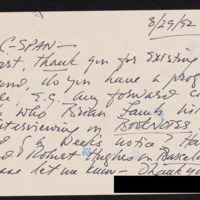 3/29/92
C-SPAN—
st, thank you for existing
and, do you have a prog
e, E.G. any forward c
who Brian Lamb wi
terviewing on BOOKNOTES
6 Weeks notice? Ha
d Robert Hughes on Barcelo
ase let me know — Thank yo